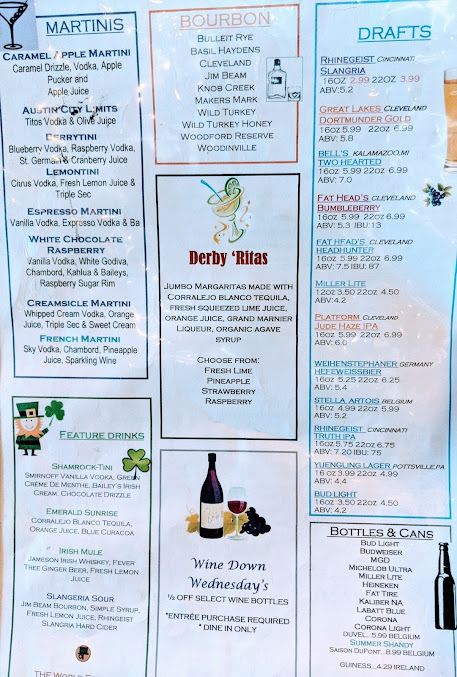 MARTINIS
CARAMEL APPLE MARTINI
Caramel Drizzle, Vodka, Apple
Pucker and
Apple Juice
AUSTIN CITY LIMITS
Titos Vodka & Olive Juice
BERRYTINI
Blueberry Vodka, Raspberry Vodka,
St. Germain & Cranberry Juice
LEMONTINI
Cirus Vodka, Fresh Lemon Juice &
Triple Sec
ESPRESSO MARTINI
Vanilla Vodka, Expresso Vodka & Ba
WHITE CHOCOLATE
RASPBERRY
Vanilla Vodka, White Godiva,
Chambord, Kahlua & Baileys,
Raspberry Sugar Rim
CREAMSICLE MARTINI
Whipped Cream Vodka, Orange
Juice, Triple Sec & Sweet Cream
FRENCH MARTINI
Sky Vodka, Chambord, Pineapple
Juice, Sparkling Wine
FEATURE DRINKS
SHAMROCK-TINI
SMIRNOFF VANILLA VODKA, GREEN
CRÈME DE MENTHE, BAILEY'S IRISH
CREAM, CHOCOLATE DRIZZLE
EMERALD SUNRISE
CORRALEJO BLANCO TEQUILA,
ORANGE JUICE, BLUE CURACOA
IRISH MULE
JAMESON IRISH WHISKEY, FEVER
THEE GINGER BEER, FRESH LEMON
JUICE
SLANGERIA SOUR
JIM BEAM BOURBON, SIMPLE SYRUP,
FRESH LEMON JUICE, RHINGEIST
SLANGRIA HARD CIDER
THE WORLD F
BOURBON
BULLEIT RYE
BASIL HAYDENS
CLEVELAND
JIM BEAM
KNOB CREEK
MAKERS MARK
WILD TURKEY
WILD TURKEY HONEY
WOODFORD RESERVE
WOODINVILLE
Derby 'Ritas
JUMBO MARGARITAS MADE WITH
CORRALEJO BLANCO TEQUILA,
FRESH SQUEEZED LIME JUICE,
ORANGE JUICE, GRAND MARNIER
LIQUEUR, ORGANIC AGAVE
SYRUP
CHOOSE FROM:
FRESH LIME
PINEAPPLE
STRAWBERRY
RASPBERRY
Wine Down
Wednesday's
½ OFF SELECT WINE BOTTLES
*ENTRÉE PURCHASE REQUIRED
* DINE IN ONLY
DRAFTS
RHINEGEIST CINCINNATI
SLANGRIA
16OZ 2.99 22OZ 3.99
ABV:5.2
GREAT LAKES CLEVELAND
DORTMUNDER GOLD
16oz 5.99 22oz 6.99
ABV: 5.8
BELL'S KALAMAZOO,MI
TWO HEARTED
16oz 5.99 22oz 6.99
ABV: 7.0
FAT HEAD'S CLEVELAND
BUMBLEBERRY
16oz 5.99 22oz 6.99
ABV: 5.3 IBU:13
FAT HEAD'S CLEVELAND
HEADHUNTER
16oz 5.99 22oz 6.99
ABV: 7.5 IBU: 87
MILLER LITE
12oz 3.50 22oz 4.50
ABV:4.2
PLATFORM CLEVELAND
JUDE HAZE IPA
16oz 5.99 22oz 6.99
ABV: 6.0
WEIHENSTEPHANER GERMANY
HEFEWEISSBIER
16oz 5.25 22oz 6.25
ABV: 5.4
STELLA ARTOIS BELGIUM
16oz 4.99 22oz 5.99
ABV: 5.2
RHINEGEIST CINCINNATI
TRUTH IPA
16oz 5.75 22oz 6.75
ABV: 7.20 IBU: 75
YUENGLING LAGER POTTSVILLE,PA
16 oz 3.99 22oz 4.99
ABV: 4.4
BUD LIGHT
16oz 3.50 22oz 4.50
ABV: 4.2
BOTTLES & CANS
BUD LIGHT
BUDWEISER
MGD
MICHELOB ULTRA
MILLER LITE
HEINEKEN
FAT TIRE
KALIBER NA
LABATT BLUE
CORONA
CORONA LIGHT
DUVEL.. 5.99 BELGIUM
SUMMER SHANDY
SAISON DUPONT...8.99 BELGIUM
GUINESS...4.29 IRELAND